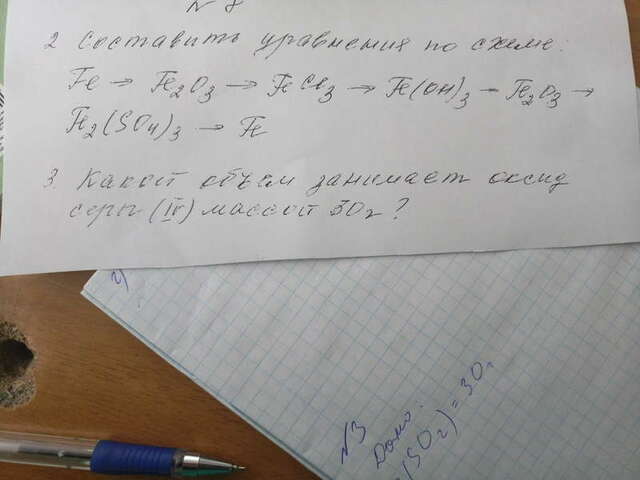 N 8
2 Составить уравнения по схеме:
Fe → Fe2O3 → FeCl3 → Fe(OH)3 – Fe2O3 →
Fe2(SO4)3 → Fe
3. Какой объём занимает оксид
серы (IV) массой 30г?
2)
N3
Дано:
(SO2) = 30г